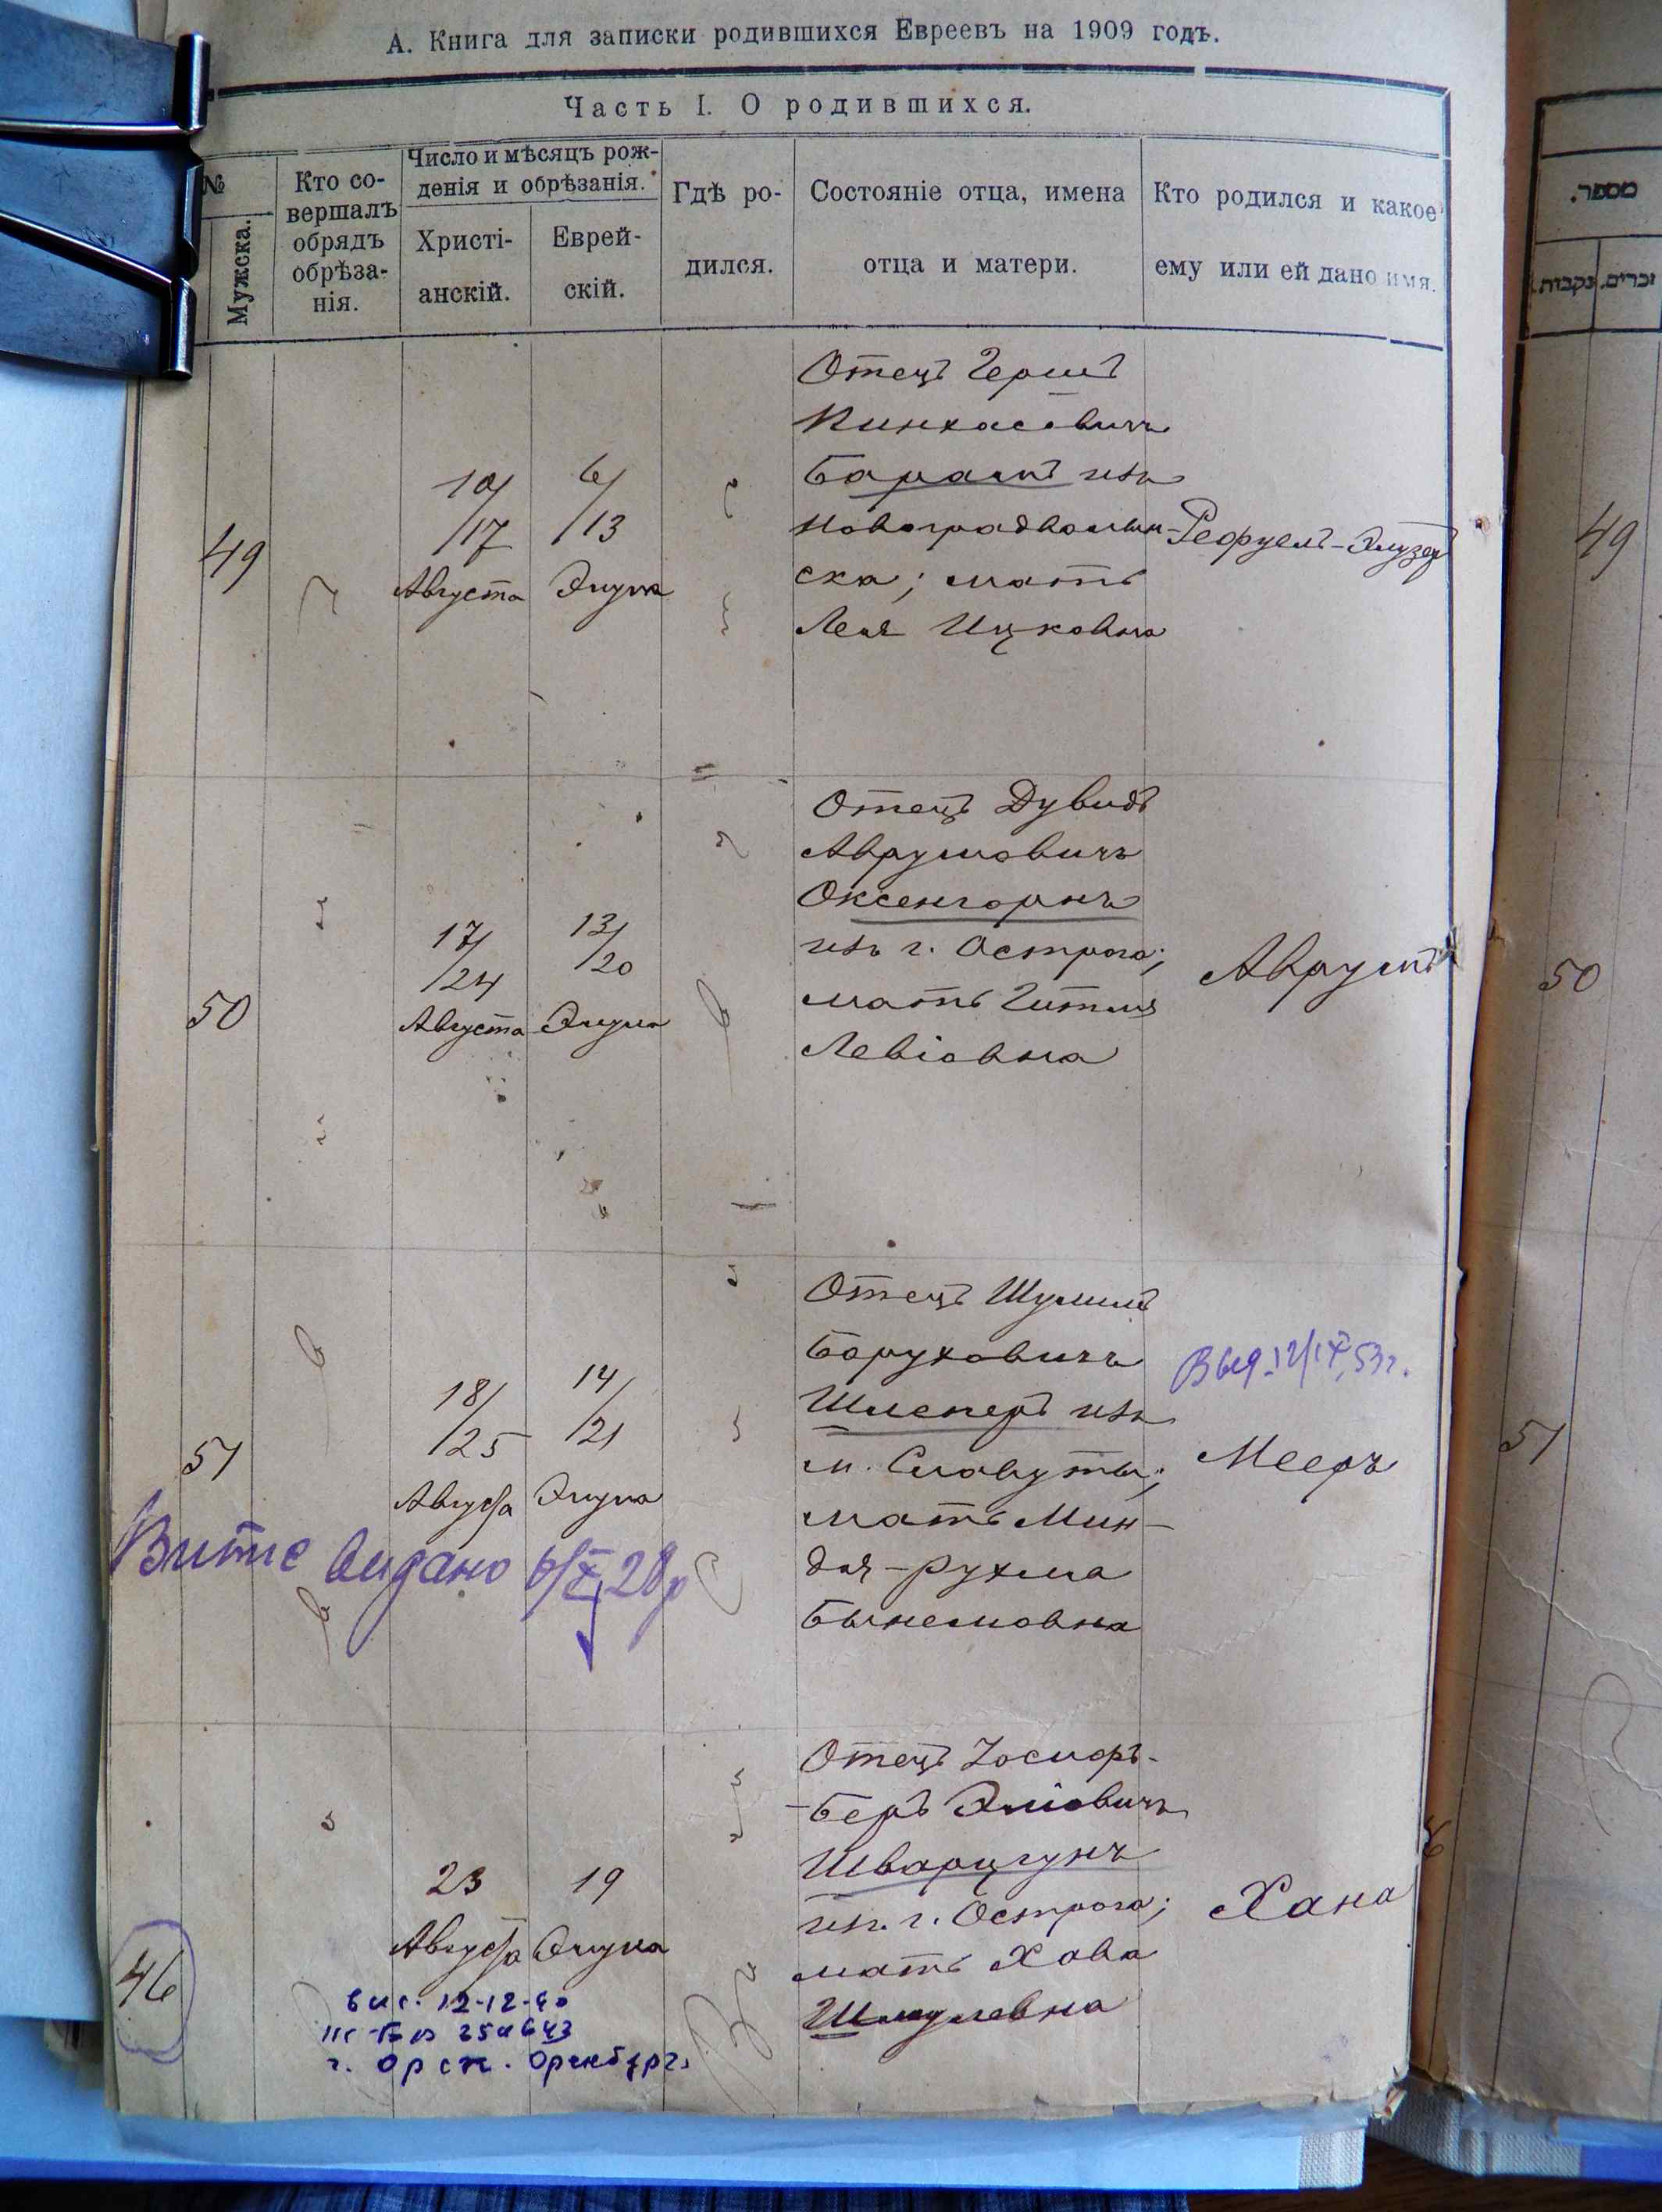 А. Книга для записки родившихся Евреевъ на 1909 годъ.
Часть I. О родившихся.
№
Мужска.
Кто со-
вершалъ
обрядъ
обрѣза-
нія.
Число и мѣсяцъ рож-
денія и обрѣзанія.
Христі-
анскій.
Еврей-
скій.
Гдѣ ро-
дился.
Состояніе отца, имена
отца и матери.
Кто родился и какое
ему или ей дано имя.
מספר.
זכרים.
נקבות
49
10/
/17
Августа
6/
/13
Элула
Отецъ Гершъ
Пинхасовичъ
Барашъ изъ
Новоградволын-
ска; мать
Лея Ицковна
Рефуелъ-
49
50
17/
/24
Августа
13/
/20
Элула
Отецъ Дувидъ
Аврумовичъ
Оксенгорнъ
изъ г. Острога;
мать Гитля
Левіовна
Аврумъ
50
51
18/
/25
Августа
14/
/21
Элула
Отецъ Шулимъ
Боруховичъ
Шлеперъ изъ
м. Славуты;
мать Мин-
для-Рухма
Выд. 12/IX 53 г.
Мееръ
51
Витяг видано
46
23
Августа
19
Элула
Отецъ Іосифъ-
-Беръ Эліовичъ
Шварцгунъ
изъ г. Острога;
мать Хава
Шмулевна
Хана
вис. 12-12-40
г. Орск. Оренбург.